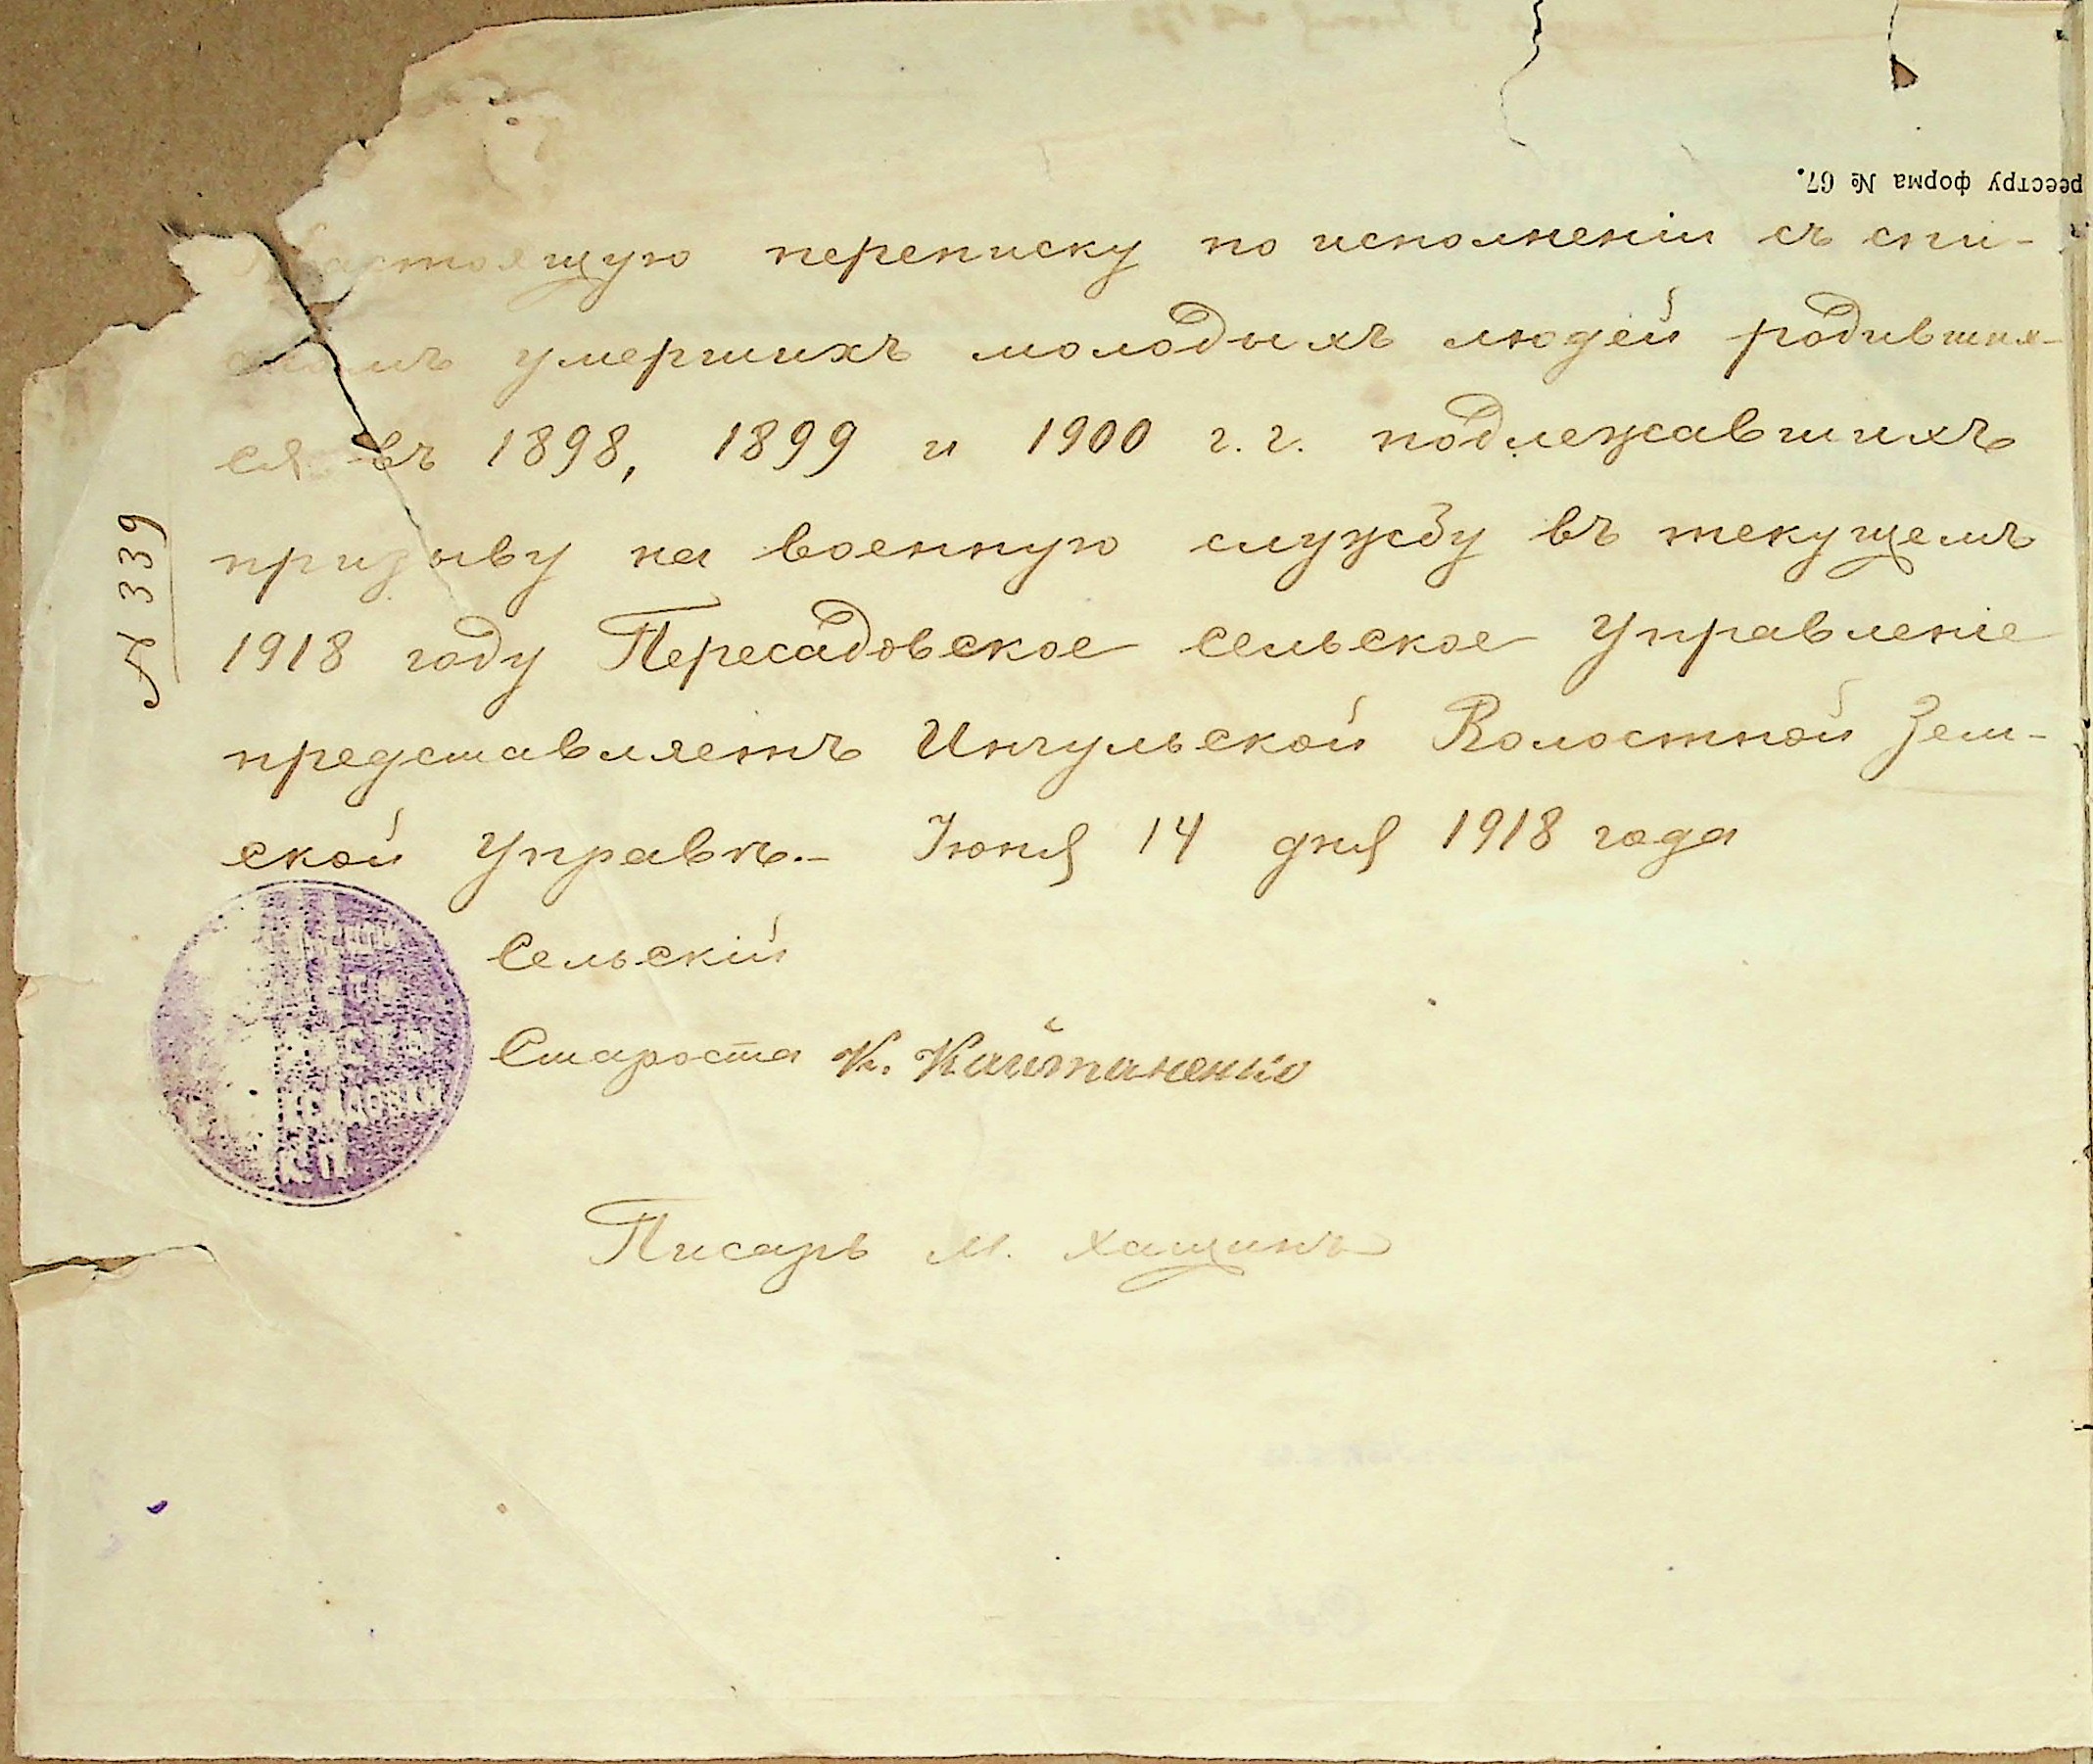 реестру форма № 67.
Настоящую переписку по исполненіи съ спи-
скомъ умершихъ молодыхъ людей родивших-
ся въ 1898, 1899 и 1900 г.г. подлежавшихъ
призыву на военную службу въ текущемъ
1918 году Пересадовское сельское Управленіе
представляетъ Ингульской Волостной Зем-
ской Управѣ.- Іюня 14 дня 1918 года
№ 339
Сельскій
Староста К. Кайтаненко
Писарь М. Хащинъ